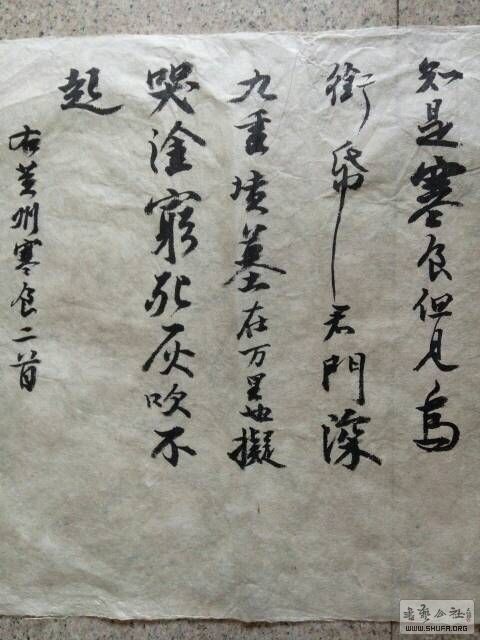 知是寒食但見烏
銜帋君門深
九重墳墓在万里也擬
哭塗窮死灰吹不
起
右黄州寒食二首
書藝公社
WWW.SHUFA.ORG